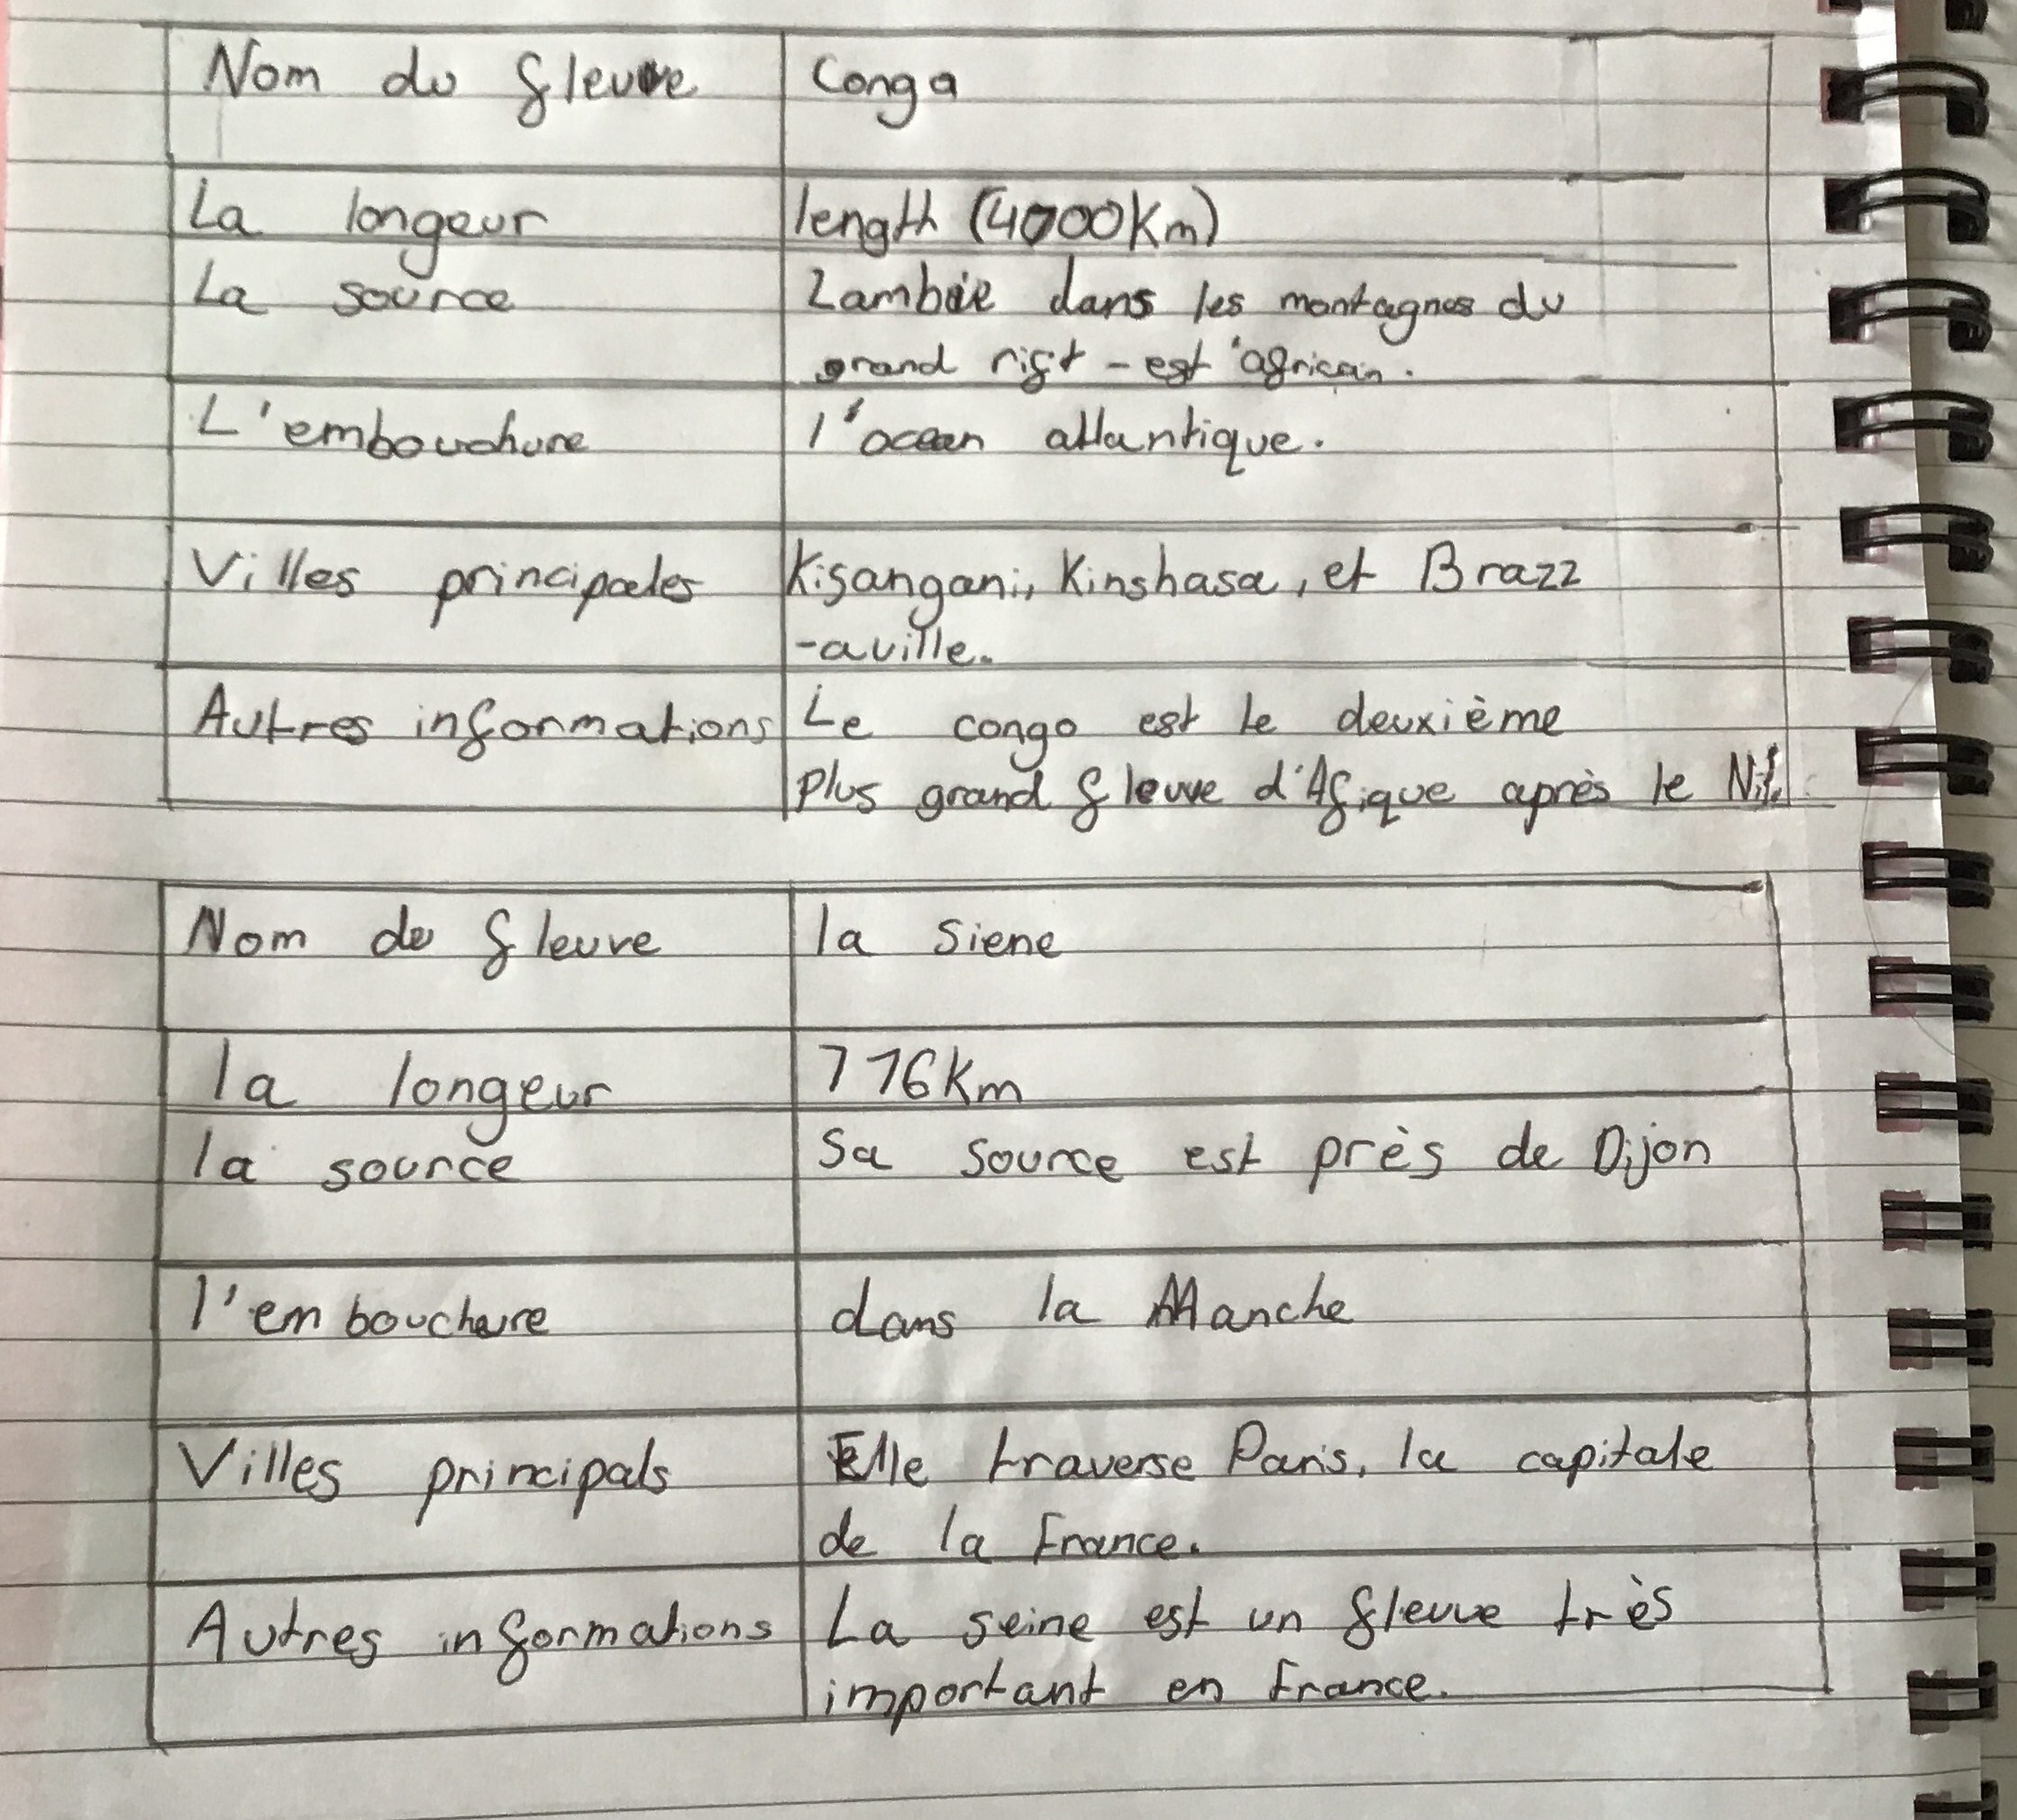 Nom du fleuve Conga
La longeur length (4000Km)
La source Zambie dans les montagnes du
grand rift - est 'african.
L'embouchure l'ocean atlantique.
Villes principales Kisangani, Kinshasa, et Brazz
-aville.
Autres informations Le congo est le deuxième
plus grand fleuve d'Afique après le Nil.
Nom du fleuve la Siene
la longeur 776Km
la source Sa source est près de Dijon
l'embouchure dans la Manche
Villes principals Elle traverse Paris, la capitale
de la France.
Autres informations La seine est un fleuve très
important en France.